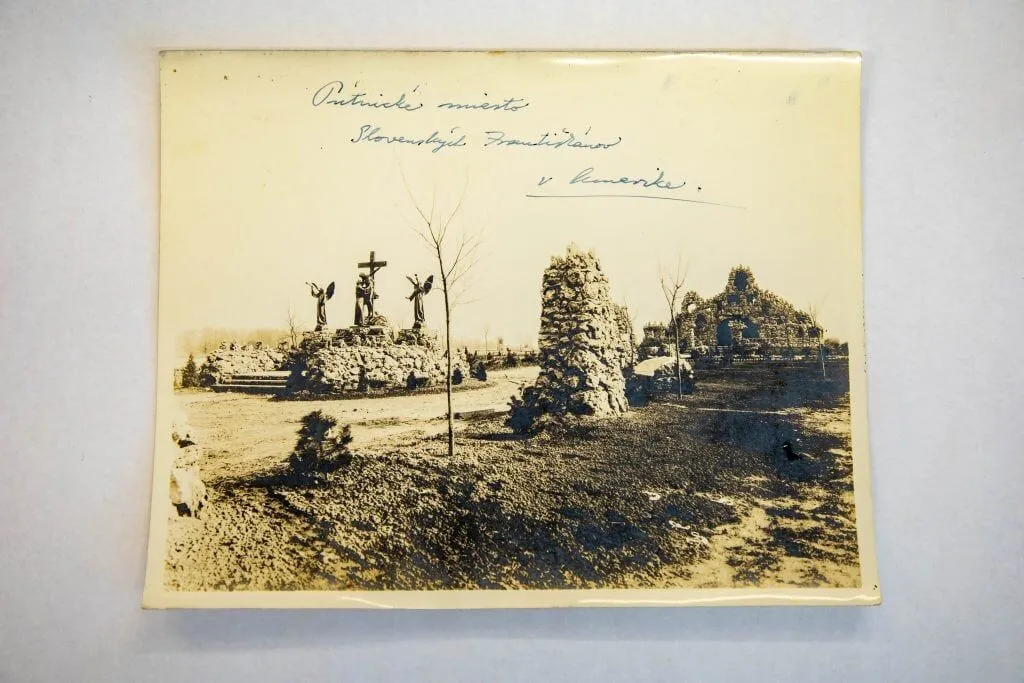 Pútnické miesto
Slovenských Františkánov
v Amerike.